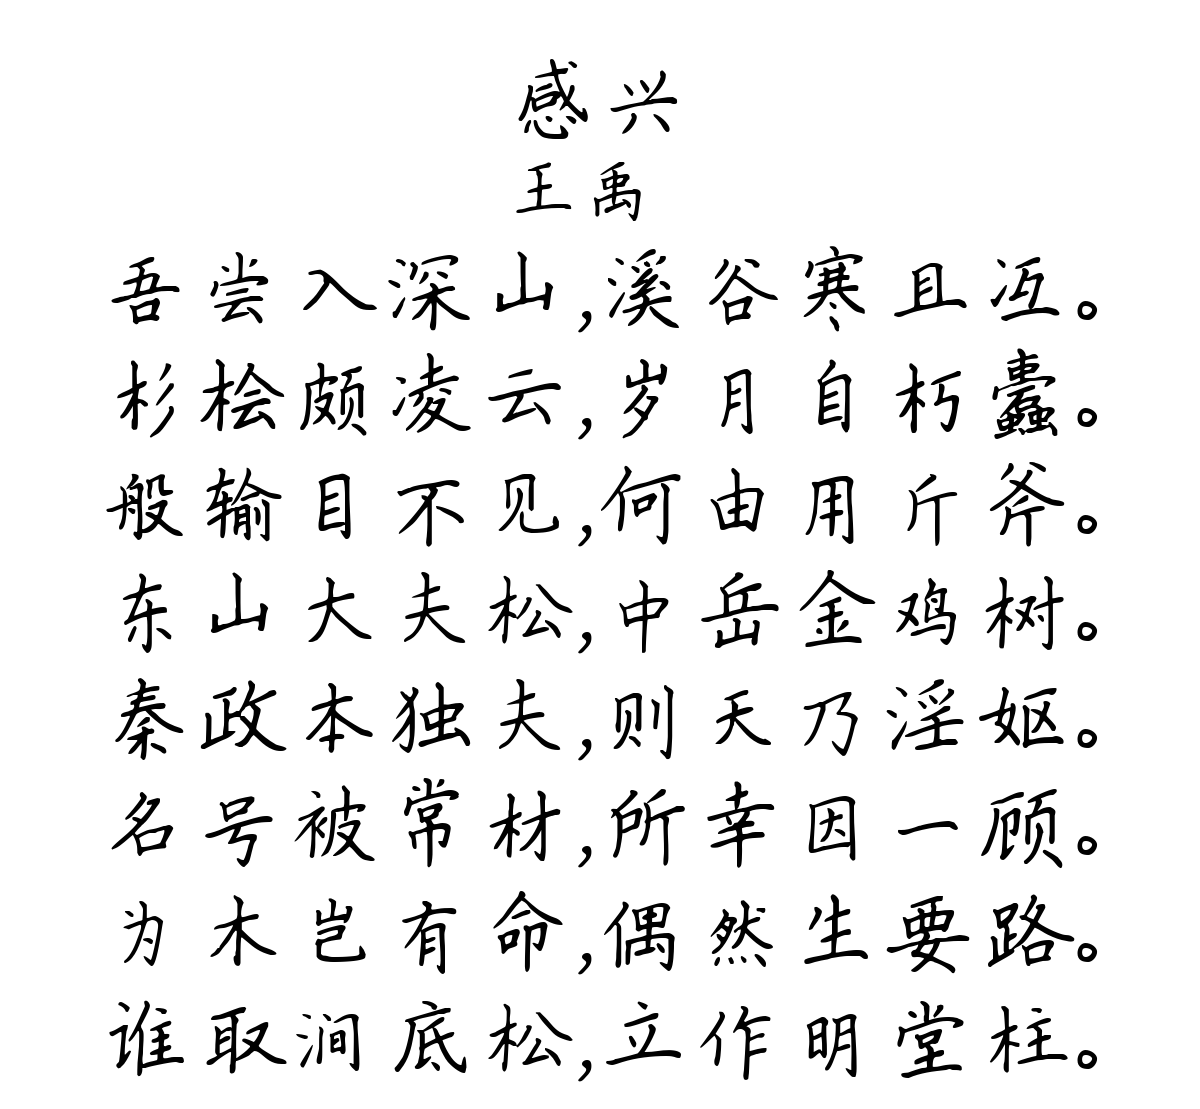 感兴
王禹
吾尝入深山,溪谷寒且冱。
杉桧颇凌云,岁月自朽蠹。
般输目不见,何由用斤斧。
东山大夫松,中岳金鸡树。
秦政本独夫,则天乃淫妪。
名号被常材,所幸因一顾。
为木岂有命,偶然生要路。
谁取涧底松,立作明堂柱。